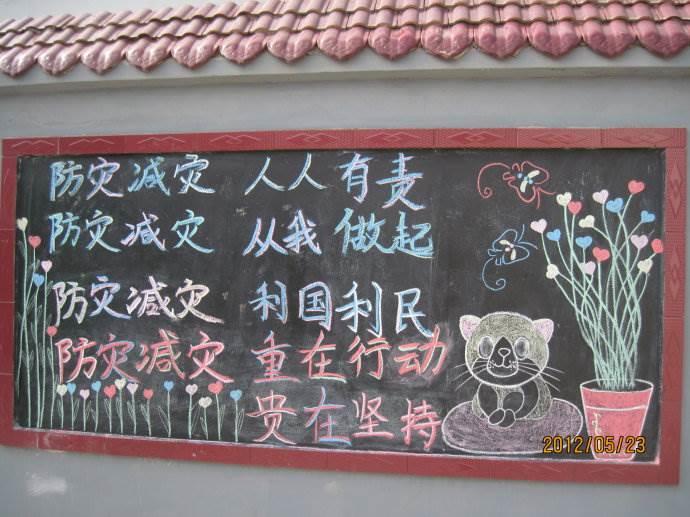 防灾减灾 人人有责
防灾减灾 从我做起
防灾减灾 利国利民
防灾减灾 重在行动
贵在坚持
2012/05/23